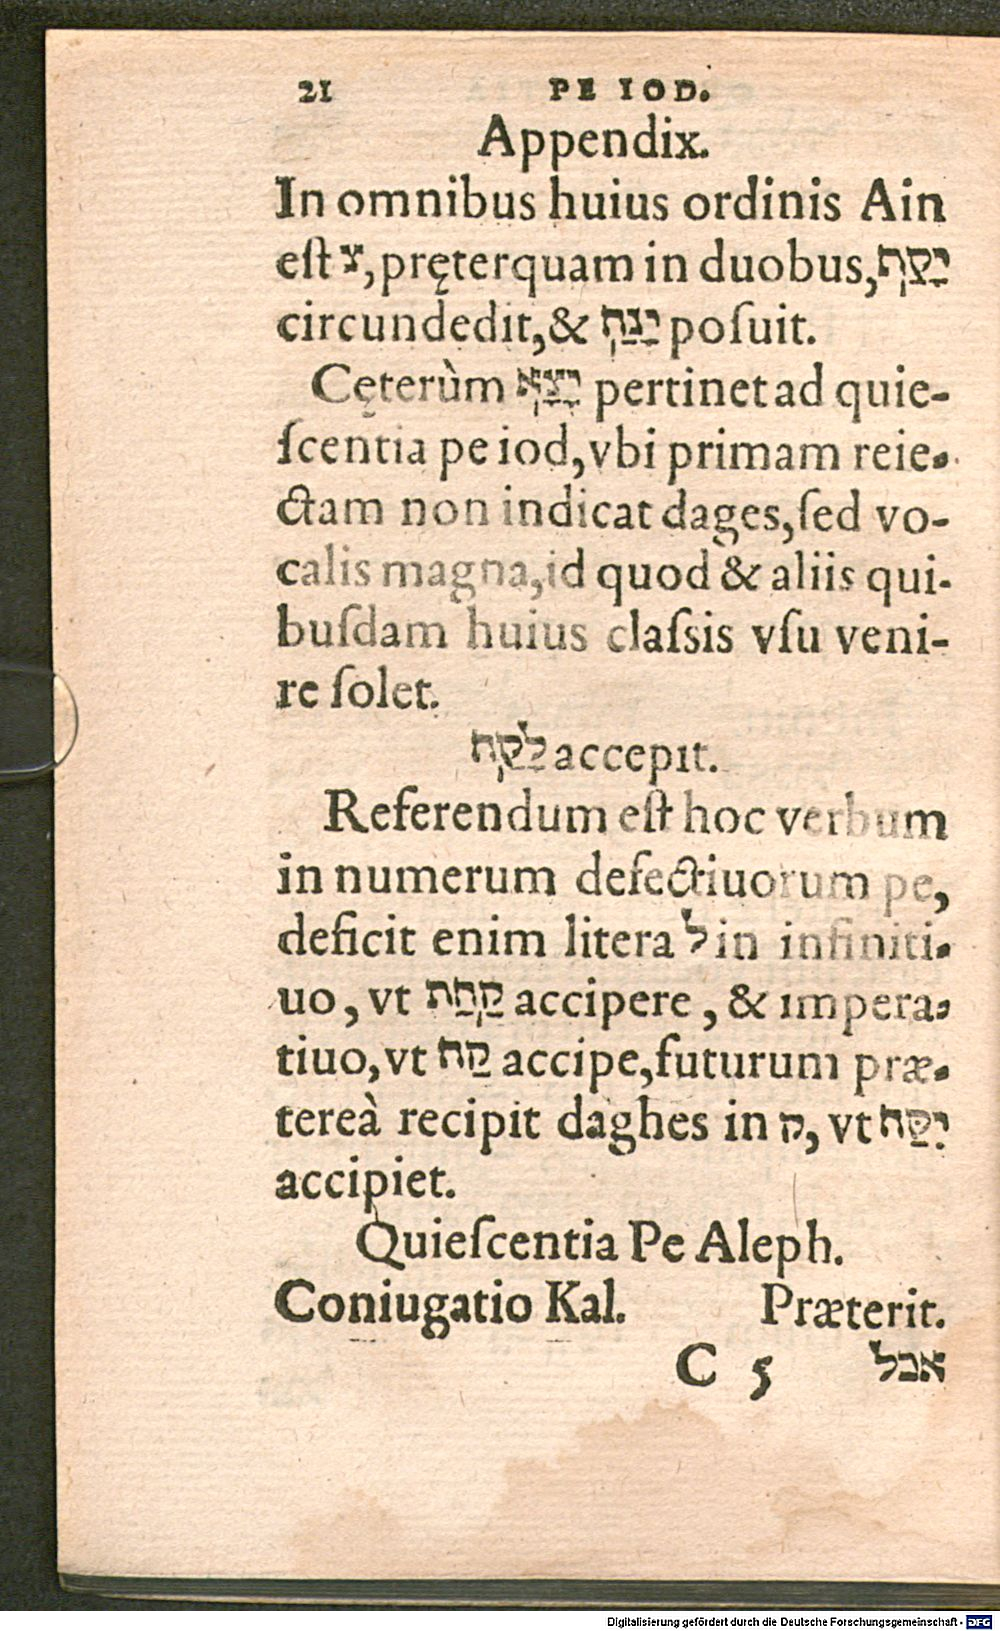 21 PE IOD.
Appendix.
In omnibus huius ordinis Ain
eſt צ, pręterquam in duobus, יָקַף
circundedit, & יָנַח poſuit.
Cęterùm יָצָא pertinet ad quie-
ſcentia pe iod, vbi primam reie-
ctam non indicat dages, ſed vo-
calis magna, id quod & aliis qui-
buſdam huius claſsis vſu veni-
re ſolet.
לָקַח accepit.
Referendum eſt hoc verbum
in numerum defectiuorum pe,
deficit enim litera ל in infiniti-
uo, vt קַחַת accipere, & impera-
tiuo, vt קַח accipe, futurum præ-
tereà recipit daghes in ק, vt יִקַּח
accipiet.
Quieſcentia Pe Aleph.
Coniugatio Kal. Præterit.
C 5 אכל
Digitalisierung gefördert durch die Deutsche Forschungsgemeinschaft - DFG